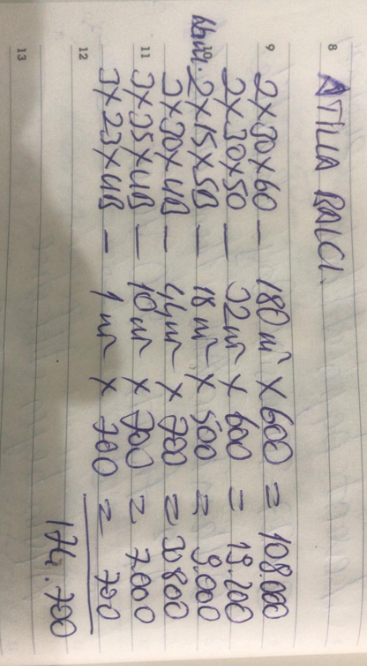 8
ATILLA BALCI.
9
2x30x60 — 180 m² x 600 = 108.000
2x30x50 — 32 m² x 600 = 19.200
10
2x15xSB — 18 m² x 500 = 9.000
3x30xUB — 44 m² x 700 = 30800
11
3x35xUB — 10 m² x 700 = 7.000
3x23xUB — 1 m² x 700 = 700
12
174.700
13